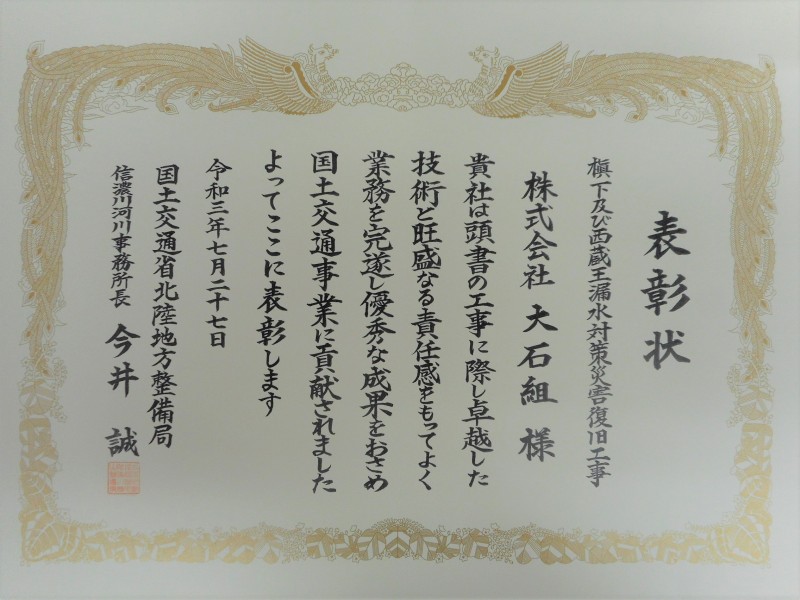 表彰状
槇下及び西蔵王漏水対策災害復旧工事
株式会社 大石組 様
貴社は頭書の工事に際し卓越した
技術と旺盛なる責任感をもってよく
業務を完遂し優秀な成果をおさめ
国土交通事業に貢献されました
よってここに表彰します
令和三年七月二十七日
国土交通省北陸地方整備局
信濃川河川事務所長 今井 誠